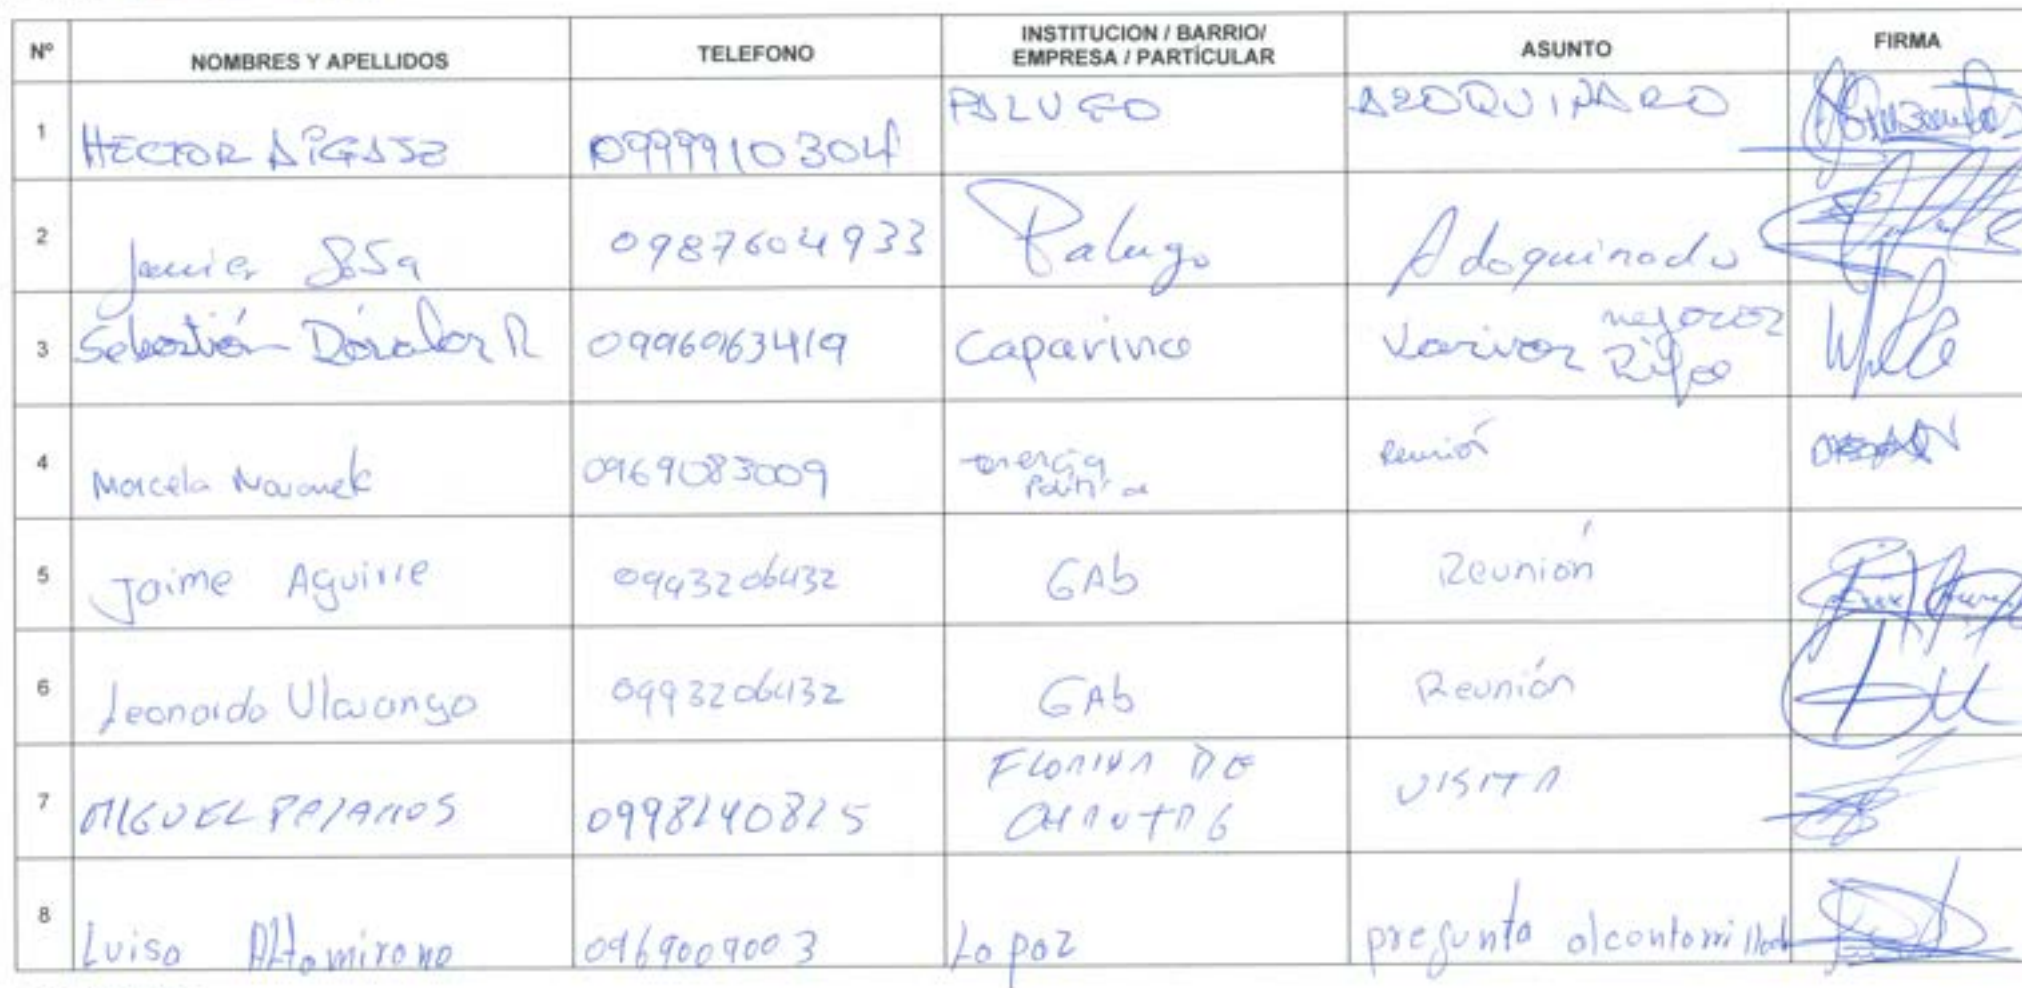 Nº NOMBRES Y APELLIDOS TELEFONO INSTITUCION / BARRIO/ EMPRESA / PARTÍCULAR ASUNTO FIRMA
1 HECTOR 0999910304 PALUGO ADOQUINADO
2 Javier Sosa 0987604933 Palugo Adoquinado
3 Sebastián Dávalos R 0996063419 Caparina Varios mejoras Rifas
4 Marcela 0969083009 energía Reunión
5 Jaime Aguirre 0993206432 GAD Reunión
6 Leonardo Ulcuango 0993206432 GAD Reunión
7 MIGUEL PAJAROS 0998240825 DE VISITA
8 Luisa Altamirano 0969009003 La paz pregunta alcantarillado